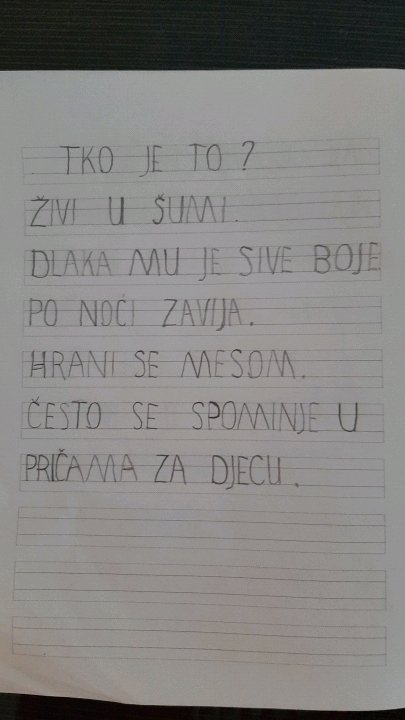 TKO JE TO?
ŽIVI U ŠUMI.
DLAKA MU JE SIVE BOJE
PO NOĆI ZAVIJA.
HRANI SE MESOM.
ČESTO SE SPOMINJE U
PRIČAMA ZA DJECU.